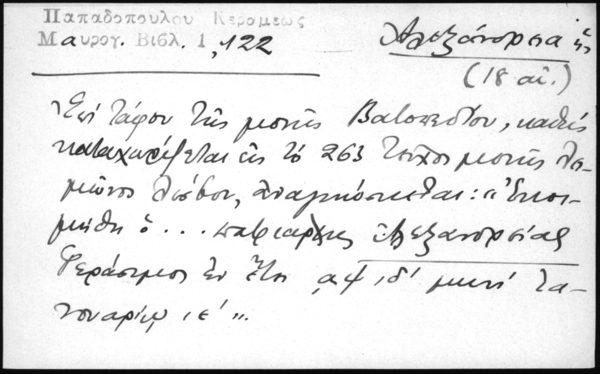 Παπαδοπούλου Κεραμέως
Μαυρογ. Βιβλ. 1, 122
Ἀλεξάνδρεια
(18 αἰ.)
Ἐπὶ τάφου τῆς μονῆς Βατοπεδίου, καθὼς
καταχωρίζεται εἰς τὸ 263 τεῦχος μονῆς Λει-
μῶνος Λέσβου, ἀναγινώσκεται: "Ἐκοι-
μήθη ὁ ... πατριάρχης Ἀλεξανδρείας
Γεράσιμος ἐν ἔτει ͵αψιδ´ μηνὶ Ἰα-
νουαρίῳ ιε´".